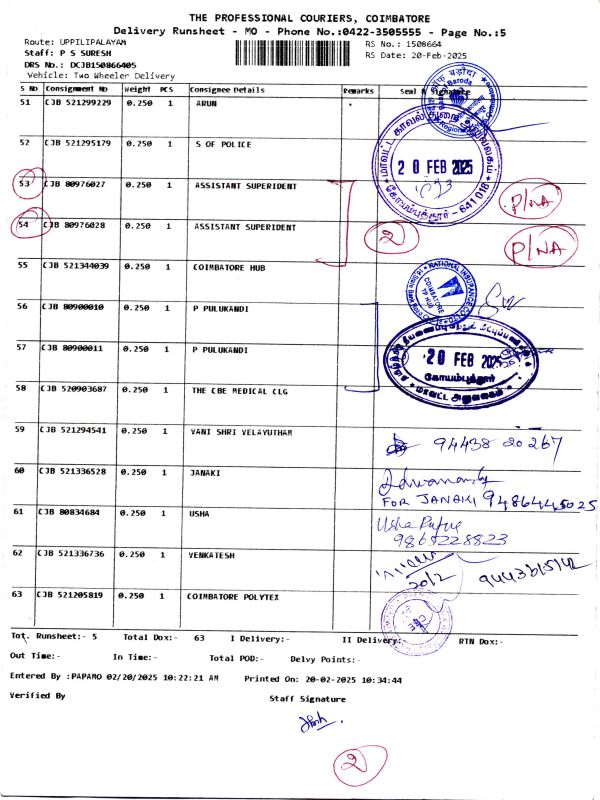 THE PROFESSIONAL COURIERS, COIMBATORE
Delivery Runsheet - MO - Phone No.:0422-3505555 - Page No.:5
Route: UPPILIPALAYAM
RS No.: 1508664
Staff: P S SURESH
RS Date: 20-Feb-2025
DRS No.: DCJB150866405
Vehicle: Two Wheeler Delivery
S No Consignment No Weight PCS Consignee Details Remarks Seal & Signature
51 CJB 521299229 0.250 1 ARUN
52 CJB 521295179 0.250 1 S OF POLICE
20 FEB 2025
கோயம்புத்தூர் - 641 018
53 CJB 80976027 0.250 1 ASSISTANT SUPERIDENT P/NA
54 CJB 80976028 0.250 1 ASSISTANT SUPERIDENT 2 P/NA
55 CJB 521344039 0.250 1 COIMBATORE HUB
NATIONAL INSURANCE CO
COIMBATORE
56 CJB 80900010 0.250 1 P PULUKANDI
57 CJB 80900011 0.250 1 P PULUKANDI
20 FEB 2025
கோயம்புத்தூர்
மாவட்ட அலுவலகம்
58 CJB 520903687 0.250 1 THE CBE MEDICAL CLG
59 CJB 521294541 0.250 1 VANI SHRI VELAYUTHAM 94438 20267
60 CJB 521336528 0.250 1 JANAKI
FOR JANAKI 9486445025
61 CJB 80834684 0.250 1 USHA Usha
9865228823
62 CJB 521336736 0.250 1 VENKATESH
20/2
63 CJB 521205819 0.250 1 COIMBATORE POLYTEX
Tot. Runsheet:- 5 Total Dox:- 63 I Delivery:- II Delivery:- RTN Dox:-
Out Time:- In Time:- Total POD:- Delvy Points:-
Entered By :PAPAMO 02/20/2025 10:22:21 AM Printed On: 20-02-2025 10:34:44
Verified By Staff Signature
2